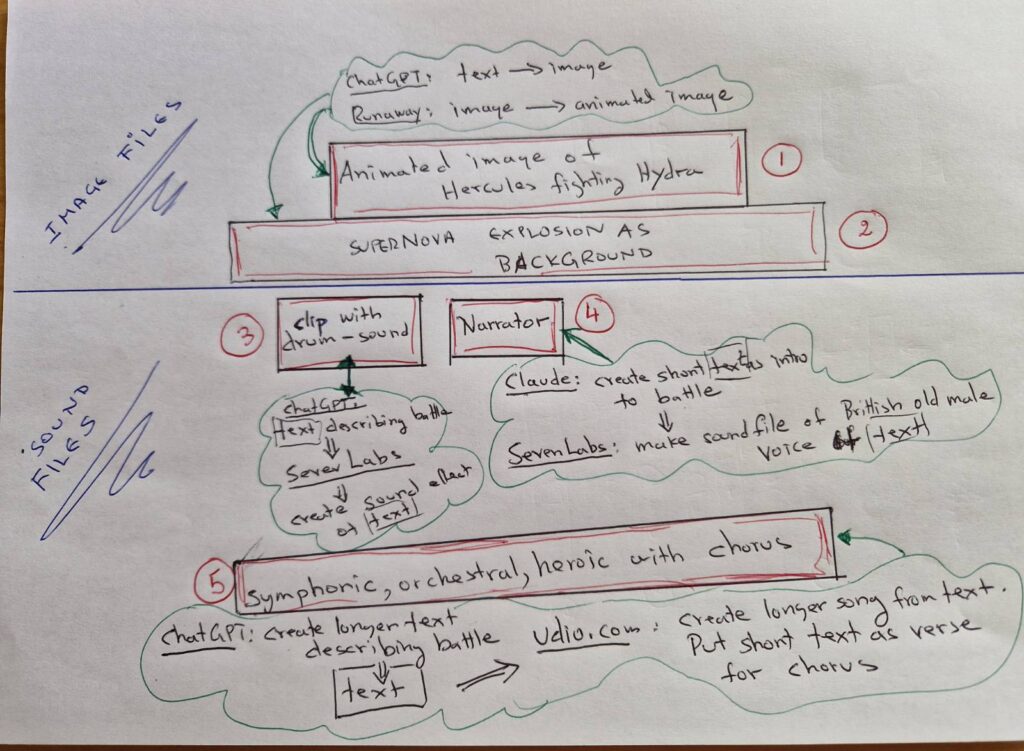 IMAGE FILES
ChatGPT: text → image
Runaway: image → animated image
Animated image of
Hercules fighting Hydra
1
SUPERNOVA EXPLOSION AS
BACKGROUND
2
SOUND
FILES
3
clip with
drum-sound
Narrator
4
ChatGPT:
text describing battle
⇓
Seven Labs
⇓
create sound effect
of text
Claude: create short text as intro
to battle
⇓
SevenLabs: make soundfile of Brittish old male
voice of text
5
symphonic, orchestral, heroic with chorus
ChatGPT: create longer text
describing battle
⇓
text
Udio.com: create longer song from text.
Put short text as verse
for chorus